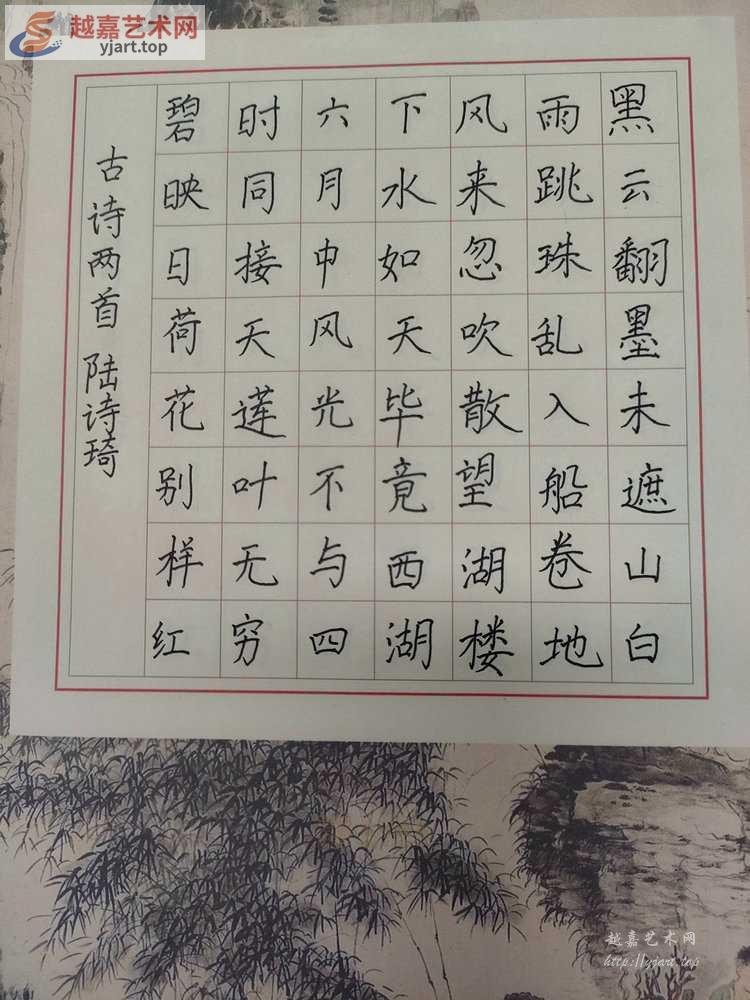 越嘉艺术网
yjart.top
黑云翻墨未遮山白
雨跳珠乱入船卷地
风来忽吹散望湖楼
下水如天毕竟西湖
六月中风光不与四
时同接天莲叶无穷
碧映日荷花别样红
古诗两首 陆诗琦
越嘉艺术网
http://yjart.top